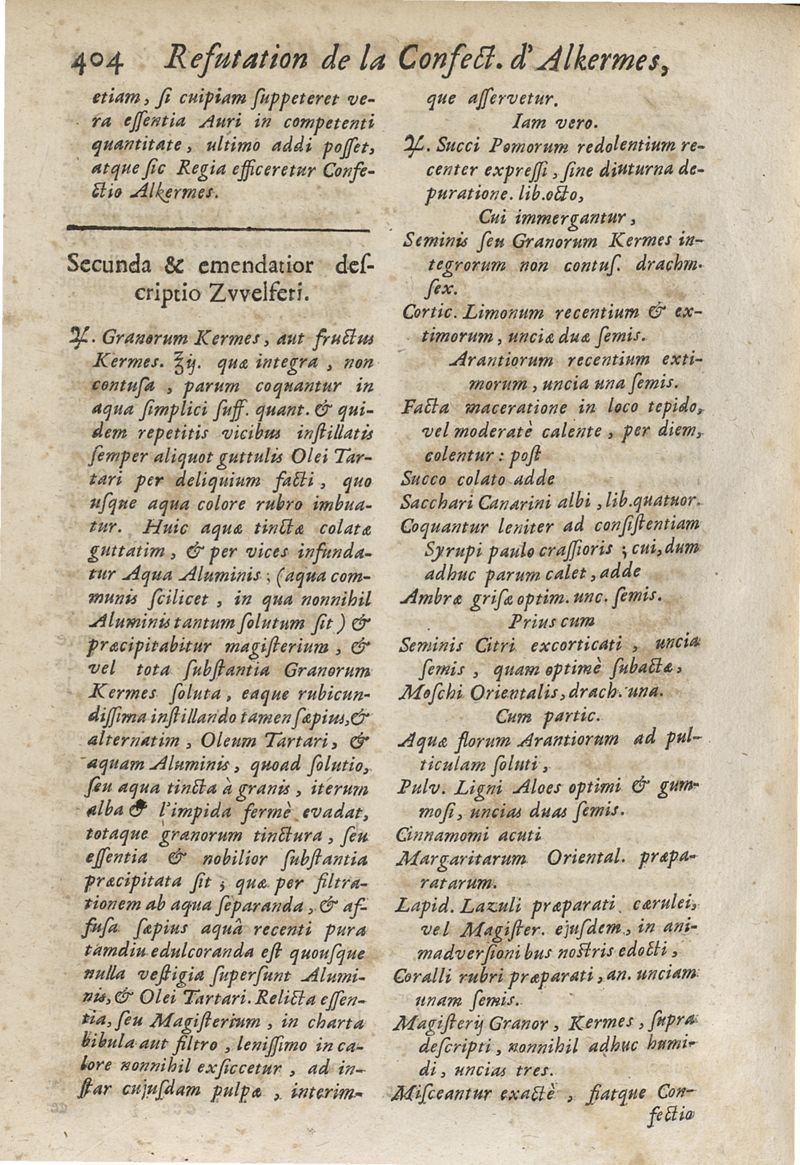 404 Refutation de la Confect. d'Alkermes,
etiam, ſi cuipiam ſuppeteret ve-
ra eſſentia Auri in competenti
quantitate, ultimo addi poſſet,
atque ſic Regia efficeretur Confe-
ctio Alkermes.
Secunda & emendatior deſ-
criptio Zvvelferi.
♃. Granorum Kermes, aut fructus
Kermes. ʒij. quæ integra, non
contuſa, parum coquantur in
aqua ſimplici ſuff. quant. & qui-
dem repetitis vicibus inſtillatis
ſemper aliquot guttulis Olei Tar-
tari per deliquium facti, quo
uſque aqua colore rubro imbua-
tur. Huic aquæ tinctæ colatæ
guttatim, & per vices infunda-
tur Aqua Aluminis; (aqua com-
munis ſcilicet, in qua nonnihil
Aluminis tantum ſolutum ſit) &
præcipitabitur magiſterium, &
vel tota ſubſtantia Granorum
Kermes ſoluta, eaque rubicun-
diſſima inſtillando tamen ſæpius, &
alternatim, Oleum Tartari, &
aquam Aluminis, quoad ſolutio,
ſeu aqua tincta à granis, iterum
alba & l'impida fermè evadat,
totaque granorum tinctura, ſeu
eſſentia & nobilior ſubſtantia
præcipitata ſit; quæ per filtra-
tionem ab aqua ſeparanda, & af-
fuſa ſæpius aquâ recenti pura
tamdiu edulcoranda eſt quouſque
nulla veſtigia ſuperſunt Alumi-
nis, & Olei Tartari. Relicta eſſen-
tia, ſeu Magiſterium, in charta
bibula aut filtro, leniſſimo in ca-
lore nonnihil exſiccetur, ad in-
ſtar cujuſdam pulpæ, interim-
que aſſervetur.
Iam vero.
♃. Succi Pomorum redolentium re-
center expreſſi, ſine diuturna de-
puratione. lib. octo,
Cui immergantur,
Seminis ſeu Granorum Kermes in-
tegrorum non contuſ. drachm.
ſex.
Cortic. Limonum recentium & ex-
timorum, unciæ duæ ſemis.
Arantiorum recentium exti-
morum, uncia una ſemis.
Facta maceratione in loco tepido,
vel moderatè calente, per diem,
colentur: poſt
Succo colato adde
Sacchari Canarini albi, lib. quatuor.
Coquantur leniter ad conſiſtentiam
Syrupi paulo craſſioris; cui, dum
adhuc parum calet, adde
Ambræ griſæ optim. unc. ſemis.
Prius cum
Seminis Citri excorticati, uncia
ſemis, quam optimè ſubactæ,
Moſchi Orientalis, drach. una.
Cum partic.
Aquæ florum Arantiorum ad pul-
ticulam ſoluti,
Pulv. Ligni Aloes optimi & gum-
moſi, uncias duas ſemis.
Cinnamomi acuti
Margaritarum Oriental. præpa-
ratarum.
Lapid. Lazuli præparati cærulei,
vel Magiſter. ejuſdem, in ani-
madverſionibus noſtris edocti,
Coralli rubri præparati, an. unciam
unam ſemis.
Magiſterij Granor, Kermes, ſupra
deſcripti, nonnihil adhuc humi-
di, uncias tres.
Miſceantur exactè, fiatque Con-
fectio